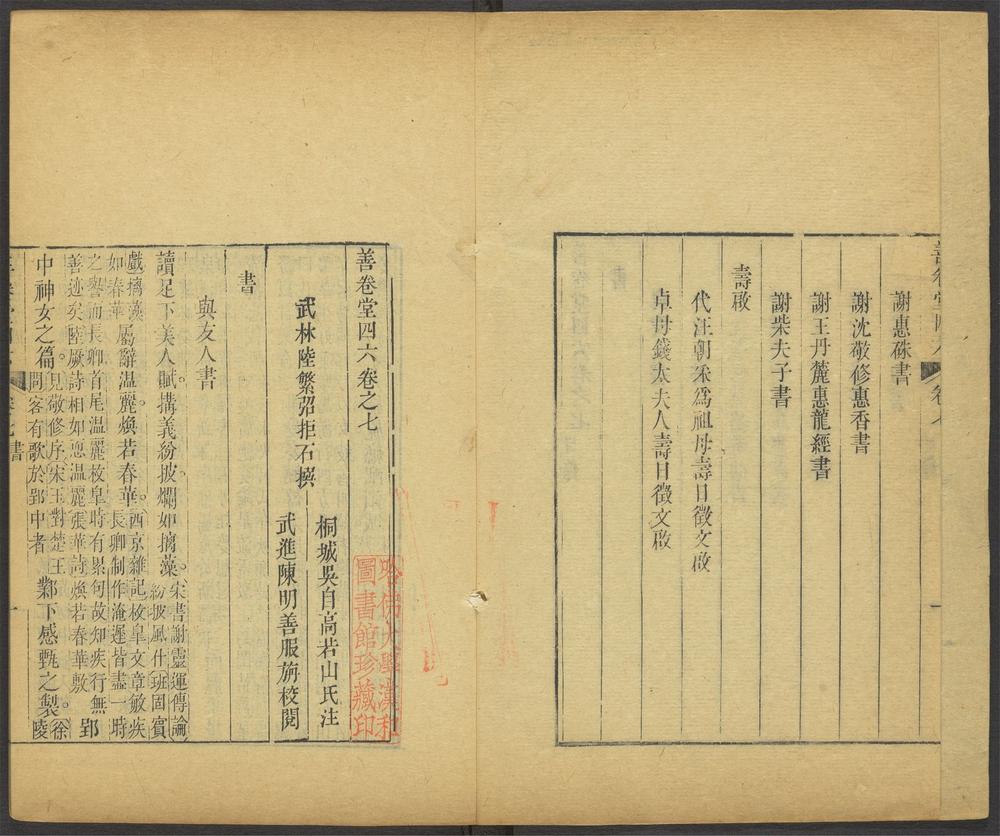 善卷堂四六 卷七
謝惠硃書
謝沈敬修惠香書
謝王丹麓惠龍經書
謝柴夫子書
壽啟
代汪朝采為祖母壽日徵文啟
卓母錢太夫人壽日徵文啟
一
善卷堂四六卷之七
武林陸繁弨拒石撰
桐城吳自高若山氏注
武進陳明善服旃校閱
書
與友人書
讀足下美人賦搆義紛披爛如摛藻。
宋書謝靈運傳論
紛披風什班固賓
戲摛藻
如春華
屬辭溫麗煥若春華。
西京雜記枚皋文章敏疾
長卿制作淹遲皆盡一時
之譽而長卿首尾溫麗枚皋時有累句故知疾行無
善迹矣陸厥詩相如恧溫麗張華詩煥若春華敷。
郢
中神女之篇。
見敬修序宋玉對楚王
問客有歌於郢中者
鄴下感甄之製。
徐
陵
卷七書
一
哈佛大學漢和
圖書館珍藏印